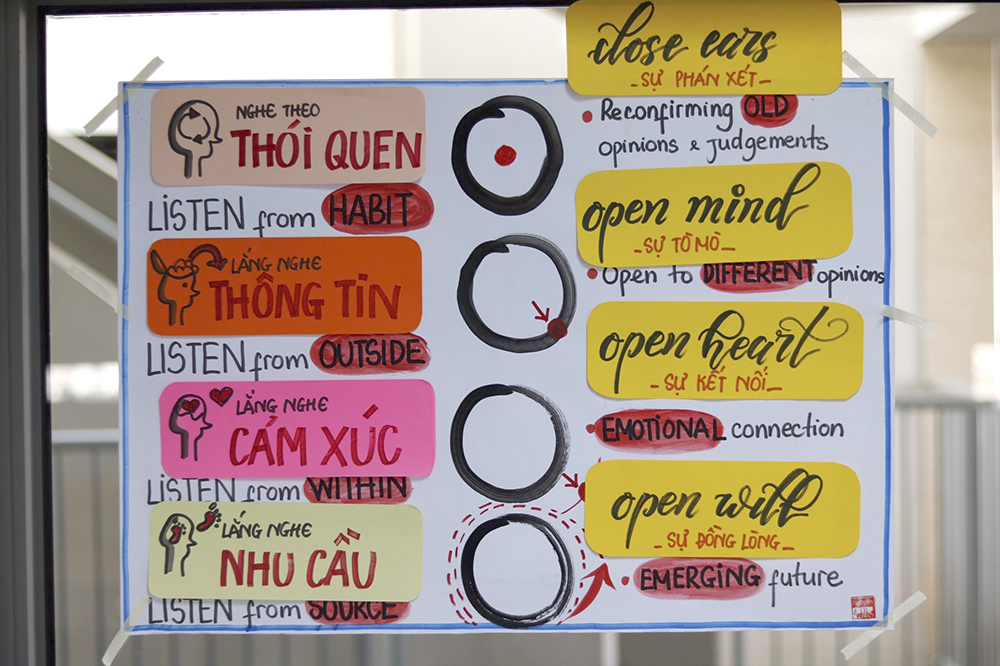 close ears
- SỰ PHÁN XÉT -
NGHE THEO
THÓI QUEN
LISTEN from HABIT
Reconfirming OLD
opinions & judgements
open mind
- SỰ TÒ MÒ -
LẮNG NGHE
THÔNG TIN
LISTEN from OUTSIDE
Open to DIFFERENT opinions
open heart
- SỰ KẾT NỐI -
LẮNG NGHE
CẢM XÚC
LISTEN from WITHIN
EMOTIONAL connection
open will
- SỰ ĐỒNG LÒNG -
LẮNG NGHE
NHU CẦU
LISTEN from SOURCE
EMERGING future